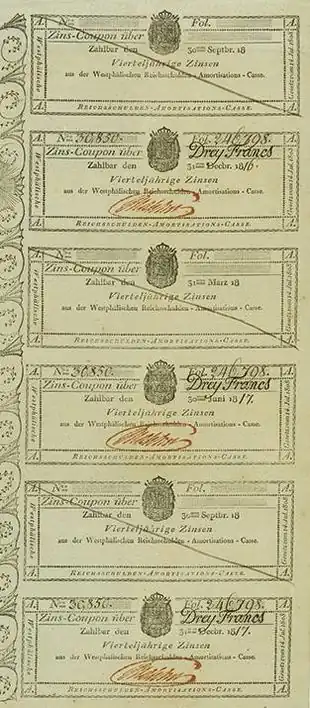 A. No Fol. A.
Zins-Coupon über
Zahlbar den 30 Septbr. 18
Vierteljährige Zinsen
aus der Westphälischen Reichsschulden-Amortisations-Casse.
Westphälische
Gesetz vom 14. Jul. 1808.
A. REICHSSCHULDEN-AMORTISATIONS-CASSE. A.
A. No 36850. Fol. 246798. A.
Zins-Coupon über Drey Francs
Zahlbar den 31 Decbr. 1816.
Vierteljährige Zinsen
aus der Westphälischen Reichsschulden-Amortisations-Casse.
Westphälische
Gesetz vom 14. Jul. 1808.
A. REICHSSCHULDEN-AMORTISATIONS-CASSE. A.
A. No Fol. A.
Zins-Coupon über
Zahlbar den 31 März 18
Vierteljährige Zinsen
aus der Westphälischen Reichsschulden-Amortisations-Casse.
Westphälische
Gesetz vom 14. Jul. 1808.
A. REICHSSCHULDEN-AMORTISATIONS-CASSE. A.
A. No 36850. Fol. 246798. A.
Zins-Coupon über Drey Francs
Zahlbar den 30 Juni 1817.
Vierteljährige Zinsen
aus der Westphälischen Reichsschulden-Amortisations-Casse.
Westphälische
Gesetz vom 14. Jul. 1808.
A. REICHSSCHULDEN-AMORTISATIONS-CASSE. A.
A. No Fol. A.
Zins-Coupon über
Zahlbar den 30 Septbr. 18
Vierteljährige Zinsen
aus der Westphälischen Reichsschulden-Amortisations-Casse.
Westphälische
Gesetz vom 14. Jul. 1808.
A. REICHSSCHULDEN-AMORTISATIONS-CASSE. A.
A. No 36850. Fol. 246798. A.
Zins-Coupon über Drey Francs
Zahlbar den 31 Decbr. 1817.
Vierteljährige Zinsen
aus der Westphälischen Reichsschulden-Amortisations-Casse.
Westphälische
Gesetz vom 14. Jul. 1808.
A. REICHSSCHULDEN-AMORTISATIONS-CASSE. A.